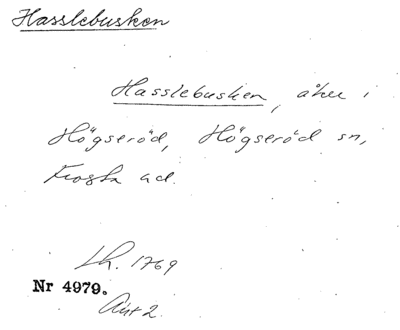 Hasslebusken
Hasslebusken, åker i
Högseröd, Högseröd sn,
Frosta hd.
Lh. 1769
Nr 4979.
Akt 2.